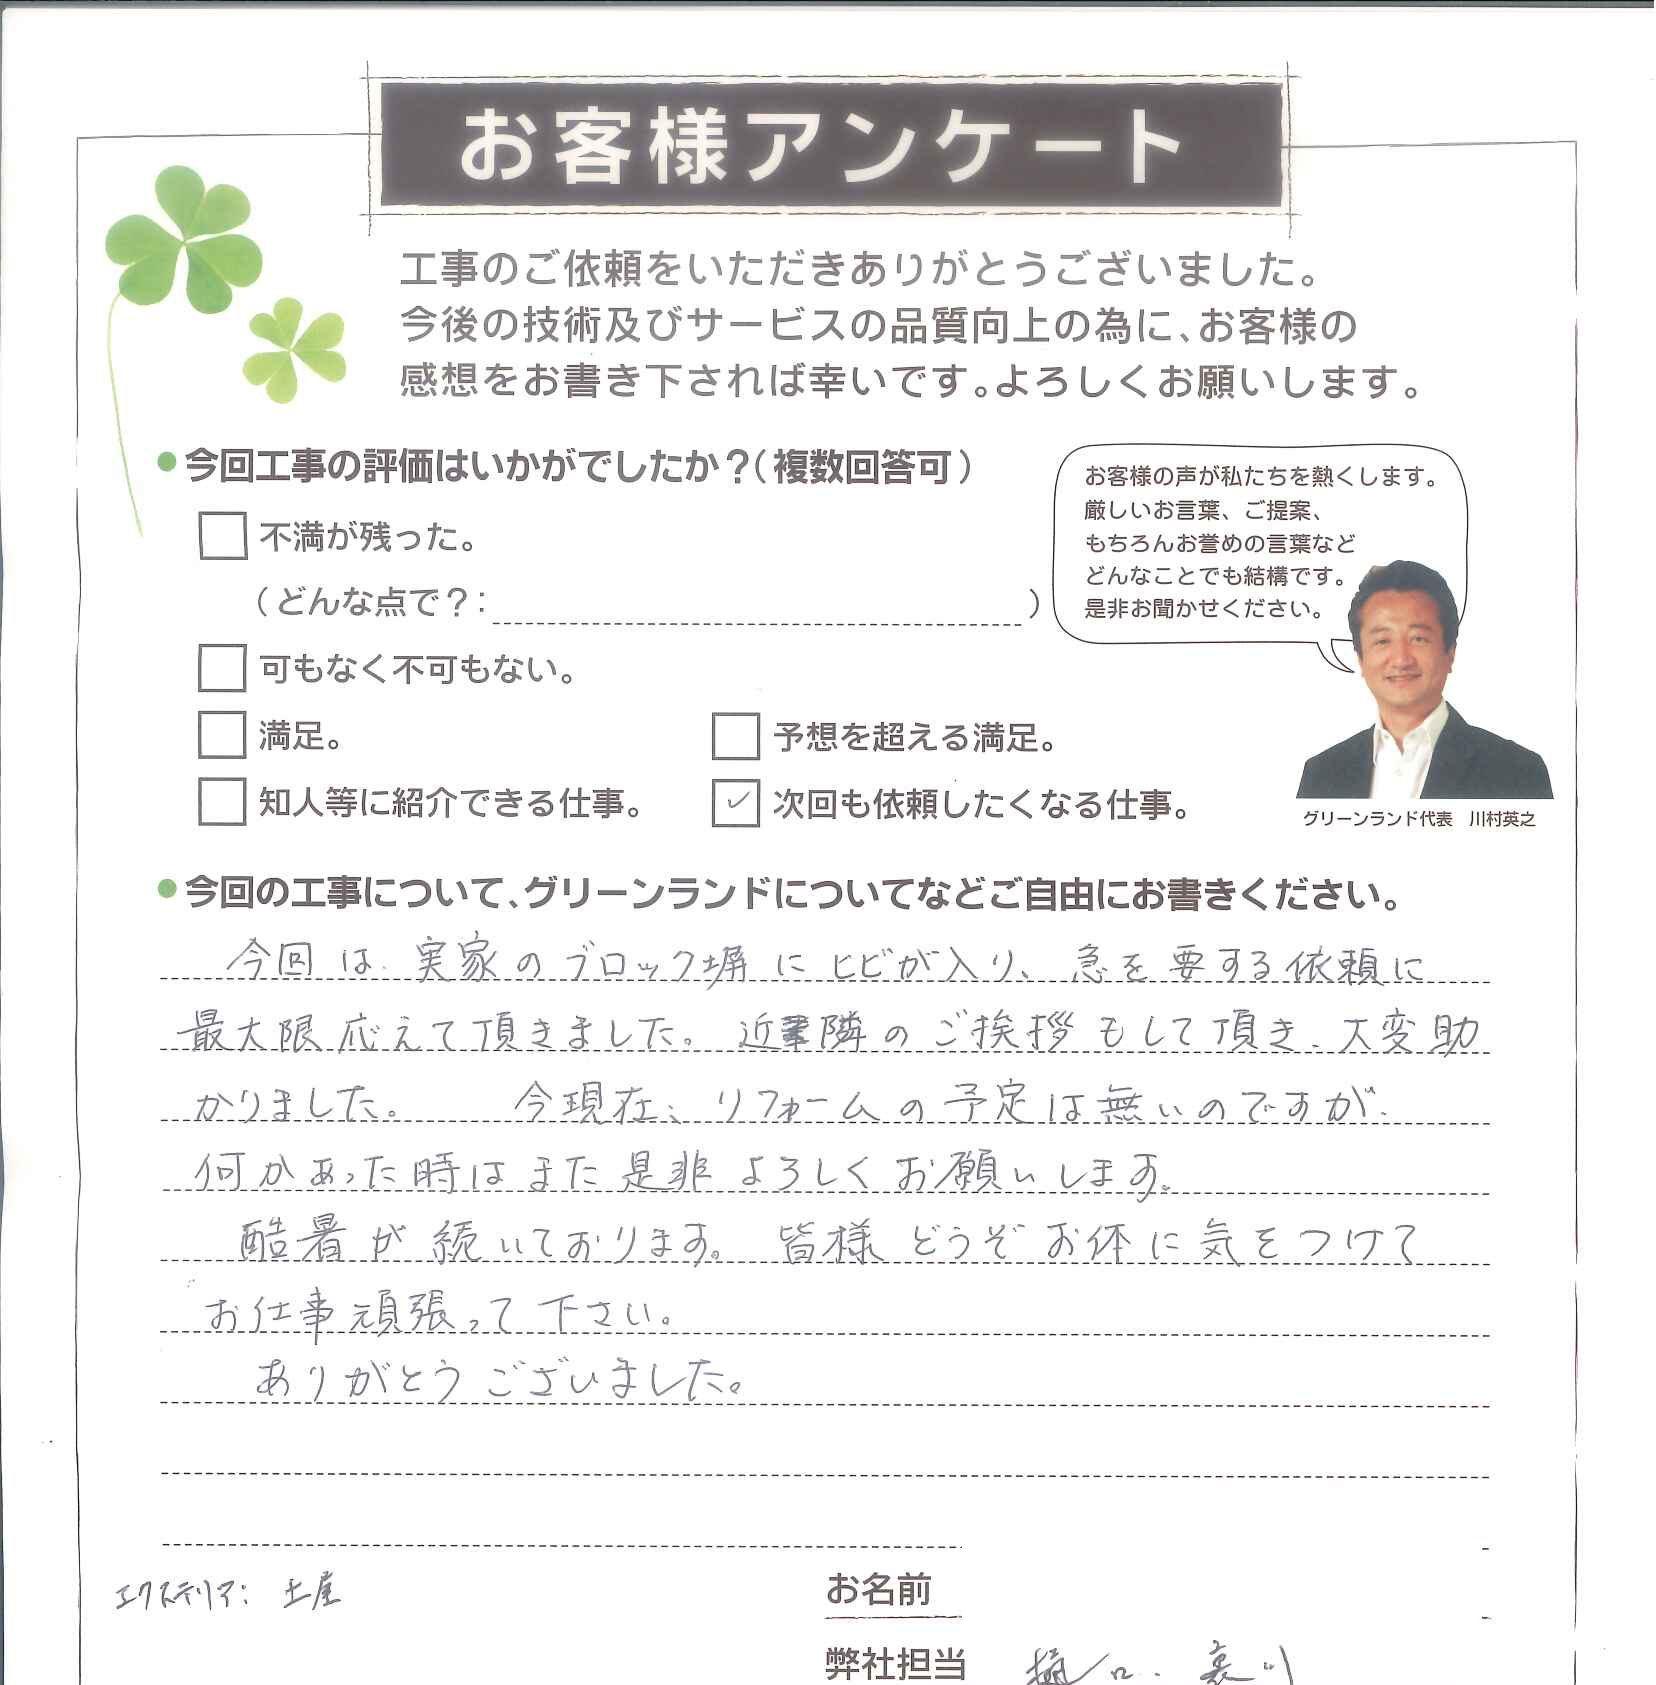 お客様アンケート
工事のご依頼をいただきありがとうございました。
今後の技術及びサービスの品質向上の為に、お客様の
感想をお書き下されば幸いです。よろしくお願いします。
今回工事の評価はいかがでしたか？（複数回答可）
不満が残った。
（どんな点で？：　）
可もなく不可もない。
満足。
予想を超える満足。
知人等に紹介できる仕事。
次回も依頼したくなる仕事。
お客様の声が私たちを熱くします。
厳しいお言葉、ご提案、
もちろんお誉めの言葉など
どんなことでも結構です。
是非お聞かせください。
グリーンランド代表　川村英之
今回の工事について、グリーンランドについてなどご自由にお書きください。
今回は、実家のブロック塀にヒビが入り、急を要する依頼に
最大限応えて頂きました。近隣のご挨拶もして頂き、大変助
かりました。　今現在、リフォームの予定は無いのですが、
何かあった時はまた是非よろしくお願いします。
酷暑が続いております。皆様どうぞお体に気をつけて
お仕事頑張って下さい。
ありがとうございました。
エクステリア：土屋
お名前
弊社担当　樋口、